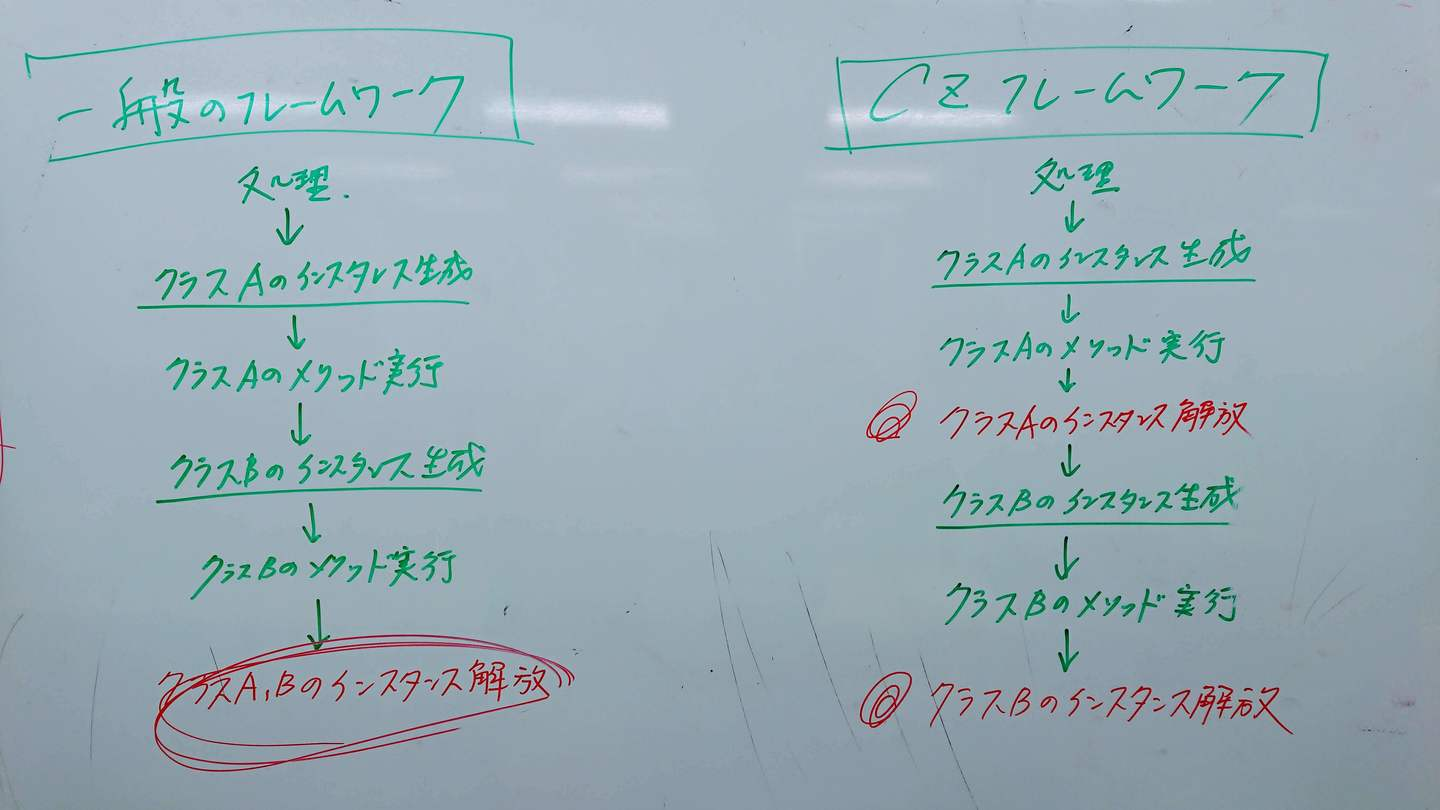 一般のフレームワーク
処理.
クラスAのインスタンス生成
クラスAのメソッド実行
クラスBのインスタンス生成
クラスBのメソッド実行
クラスA,Bのインスタンス解放
CZフレームワーク
処理
クラスAのインスタンス生成
クラスAのメソッド実行
◎ クラスAのインスタンス解放
クラスBのインスタンス生成
クラスBのメソッド実行
◎ クラスBのインスタンス解放